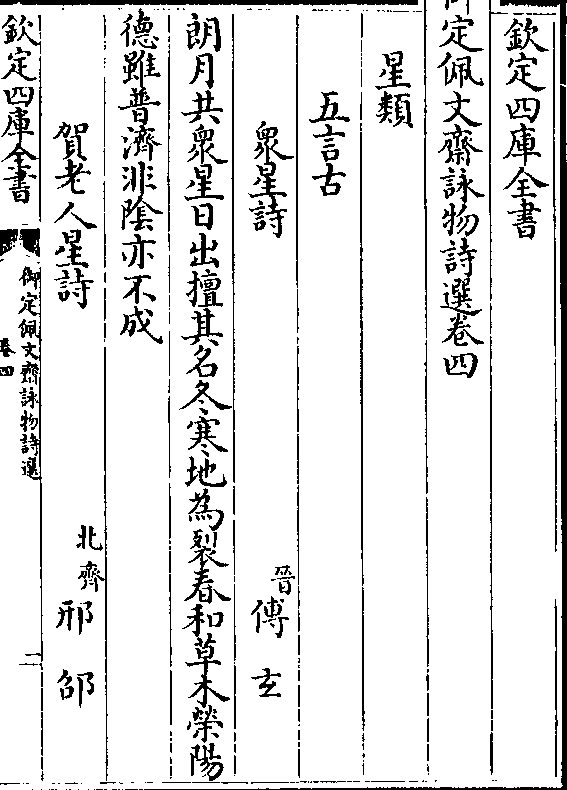 欽定四庫全書
御定佩文齋詠物詩選卷四
星類
五言古
衆星詩 晉 傅玄
朗月共衆星日出擅其名冬寒地為裂春和草木榮陽
德雖普濟非陰亦不成
賀老人星詩 北齊 邢邵
欽定四庫全書 御定佩文齋詠物詩選 卷四 二